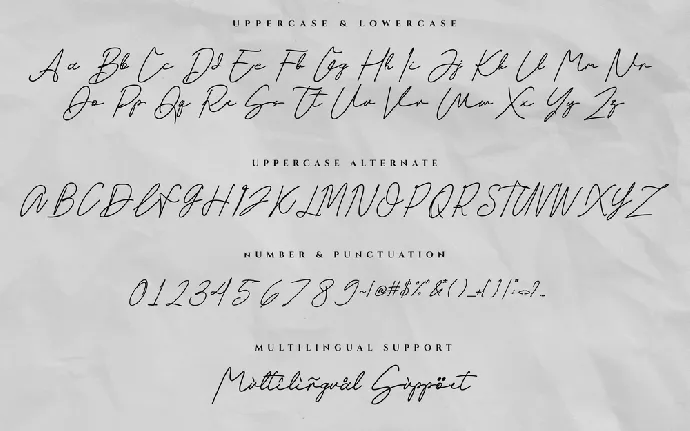 UPPERCASE & LOWERCASE
Aa Bb Cc Dd Ee Ff Gg Hh Ii Jj Kk Ll Mm Nn
Oo Pp Qq Rr Ss Tt Uu Vv Ww Xx Yy Zz
UPPERCASE ALTERNATE
A B C D E F G H I J K L M N O P Q R S T U V W X Y Z
NUMBER & PUNCTUATION
0 1 2 3 4 5 6 7 8 9 ~ ! @ # $ % & ( )
MULTILINGUAL SUPPORT